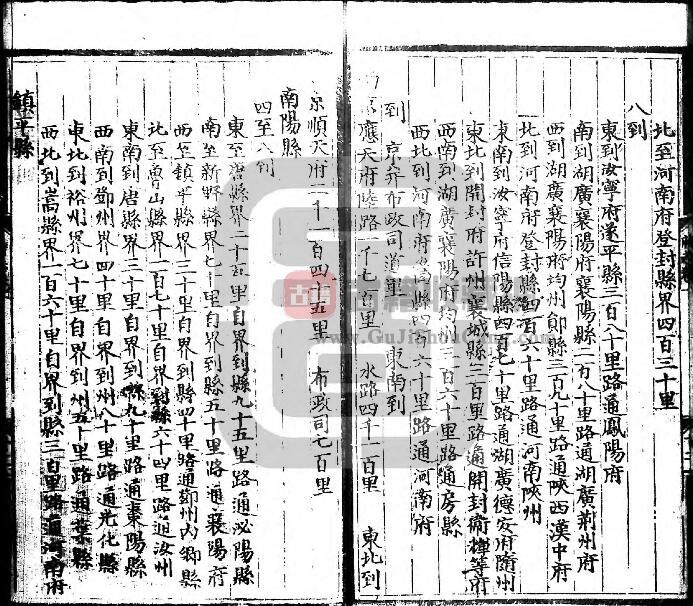 北至河南府登封縣界四百三十里
八到
東到汝寧府遂平縣三百八十里路通鳳陽府
南到湖廣襄陽府襄陽縣二百八十里路通湖廣荊州府
西到湖廣襄陽府均州鄖縣三百九十里路通陝西漢中府
北到河南府登封縣四百六十里路通河南陝州
東南到汝寧府信陽縣四百七十里路通湖廣德安府隨州
東北到開封府許州襄城縣三百里路通開封衛輝等府
西南到湖廣襄陽府均州三百六十里路通房縣
西北到河南府嵩縣四百六十里路通河南府
到 京并布政司道里 東南到
應天府陸路一千七百里 水路四千一百里 東北到
京順天府二千一百四十五里 布政司七百里
南陽縣
四至八到
東至唐縣界二十五里自界到縣九十五里路通泌陽縣
南至新野縣界七十里自界到縣五十里路通襄陽府
西至鎮平縣界三十里自界到縣四十里路通鄧州內鄉縣
北至魯山縣界一百七十里自界到縣六十四里路通汝州
東南到唐縣界三十里自界到縣九十里路通棗陽縣
西南到鄧州界四十里自界到州八十里路通光化縣
東北到裕州界七十里自界到州五十里路通葉縣
西北到嵩縣界一百六十里自界到縣三百里路通河南府
鎮平縣
古籍
www.GuJiShouCang.com